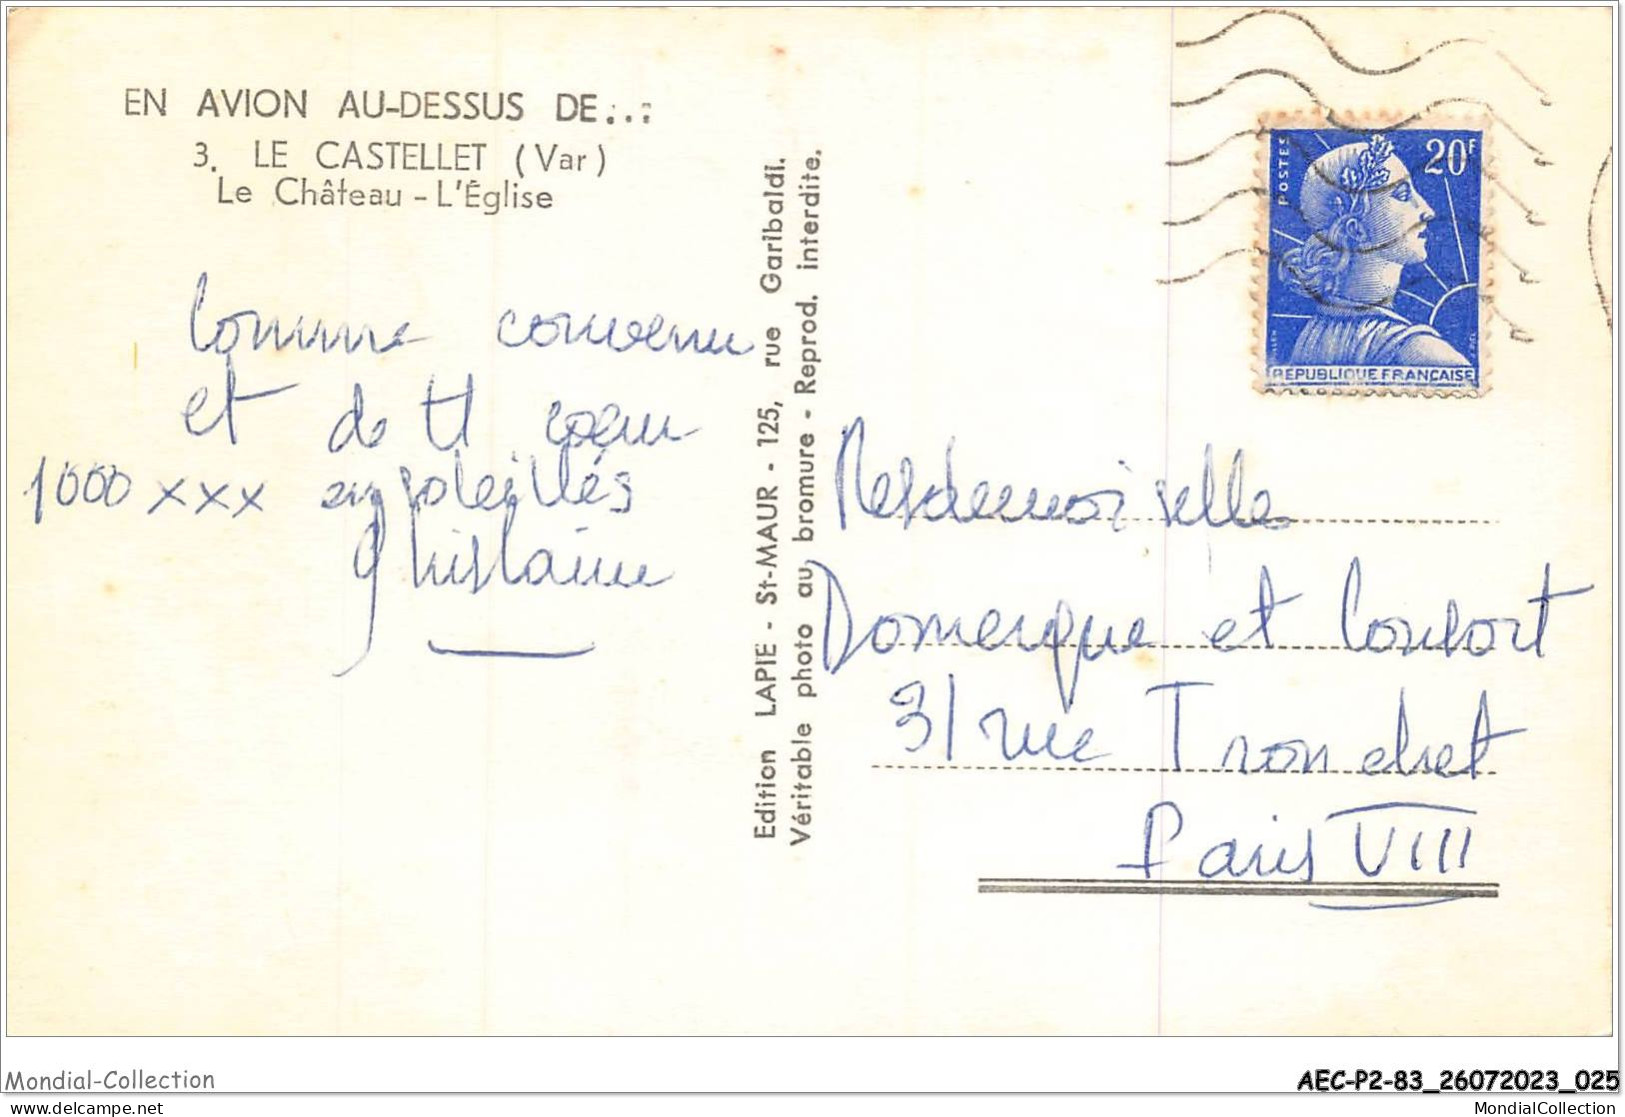 EN AVION AU-DESSUS DE...:
3. LE CASTELLET (Var)
Le Château - L'Église
Comme convenu
et de tt coeur
1000 xxx ensoleillés
Ghislaine
Edition LAPIE - St-MAUR - 125, rue Garibaldi.
Véritable photo au bromure - Reprod. interdite.
POSTES
20F
REPUBLIQUE FRANÇAISE
Mesdemoiselles
Domerque et Confort
31 rue Tronchet
Paris VIII
Mondial-Collection
delcampe.net
AEC-P2-83_26072023_025
MondialCollection